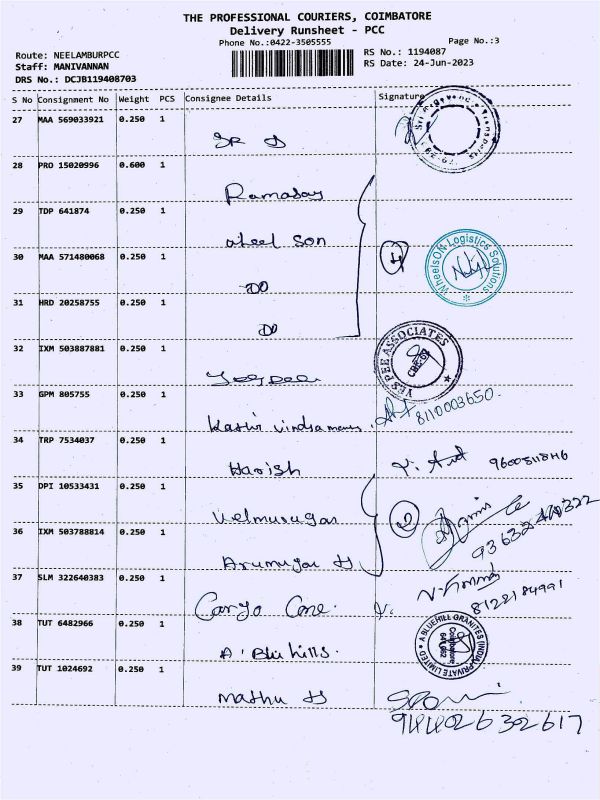 THE PROFESSIONAL COURIERS, COIMBATORE
Delivery Runsheet - PCC
Phone No.:0422-3505555
Page No.:3
Route: NEELAMBURPCC
RS No.: 1194087
Staff: MANIVANNAN
RS Date: 24-Jun-2023
DRS No.: DCJB119408703
S No Consignment No Weight PCS Consignee Details Signature
27 MAA 569033921 0.250 1
28 PRO 15020996 0.600 1
Ramaday
29 TDP 641874 0.250 1
wheel son
30 MAA 571480068 0.250 1
WheelsON Logistics Solutions
DO
31 HRD 20258755 0.250 1
DO
32 IXM 503887881 0.250 1
YES PEE ASSOCIATES
CBE-62
33 GPM 805755 0.250 1
8110003650.
34 TRP 7534037 0.250 1
Harish
35 DPI 10533431 0.250 1
Velmurugan
93632470322
36 IXM 503788814 0.250 1
37 SLM 322640383 0.250 1
8128184991
Cargo Cone.
38 TUT 6482966 0.250 1
A BLUEHILL GRANITES (INDIA) PRIVATE LIMITED
Coimbatore
A. Blu hills.
39 TUT 1024692 0.250 1